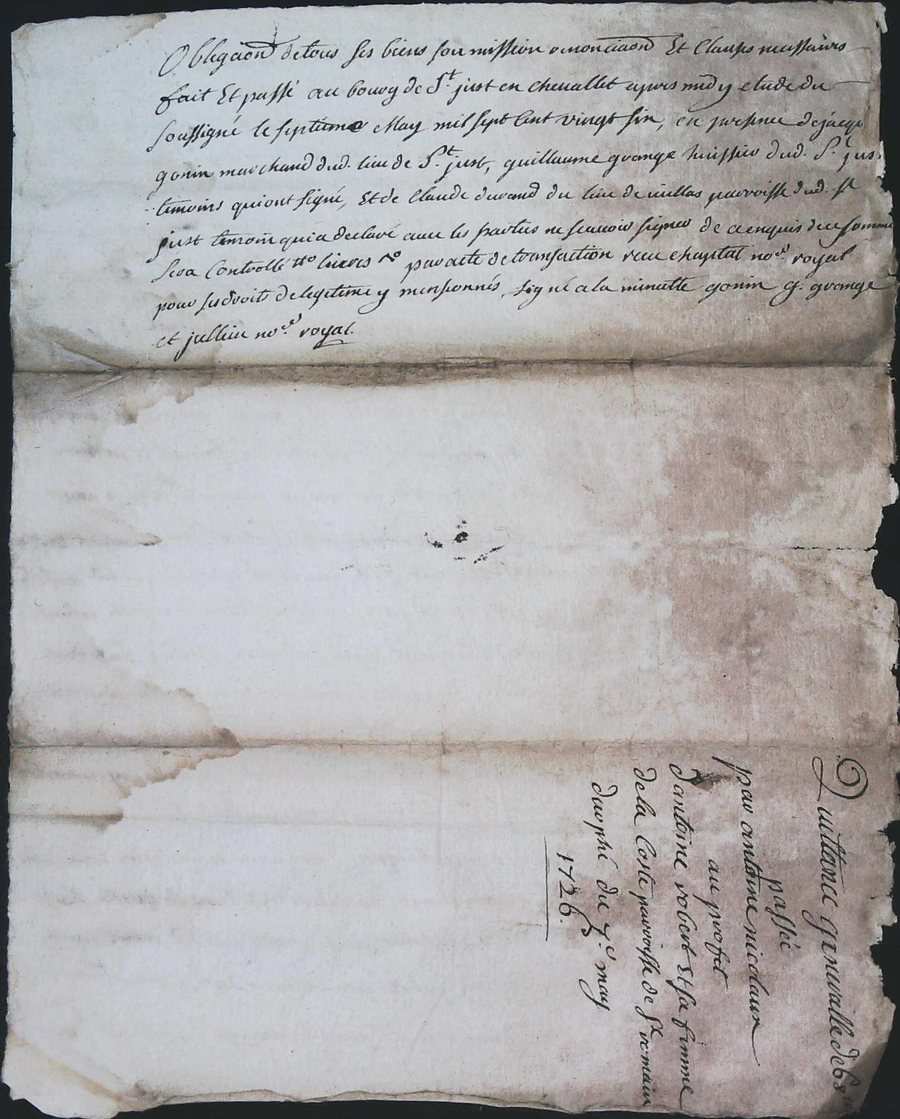 Obligaõn de tous ses biens soumission renonciaõn Et Clauses necessaires
fait Et passé au bourg de S.t just en chevallet apres midy etude du
soussigné le septieme May mil sept Cent vingt six, en presence de jacq
gonin marchand dud. lieu de S.t just, guillaume grange huissier dud. S.t jus
temoins qui ont signé, Et de Claude durand du lieu de parroisse dud. S.t
just temoin qui a declaré avec les parties ne scavoir signer de ce enquis
sera Controllé par acte de transaction receu chaptal no.re royal
pour ses droits de legitime y mensionnés, signé a la minutte gonin g. grange
et jullien no.re royal.
Quittance generalle de
passée
par antoine nicolaux
au profit
d'antoine robert et sa femme
de la Coste parroisse de S.t romain
durphé du 7.e may
1726.